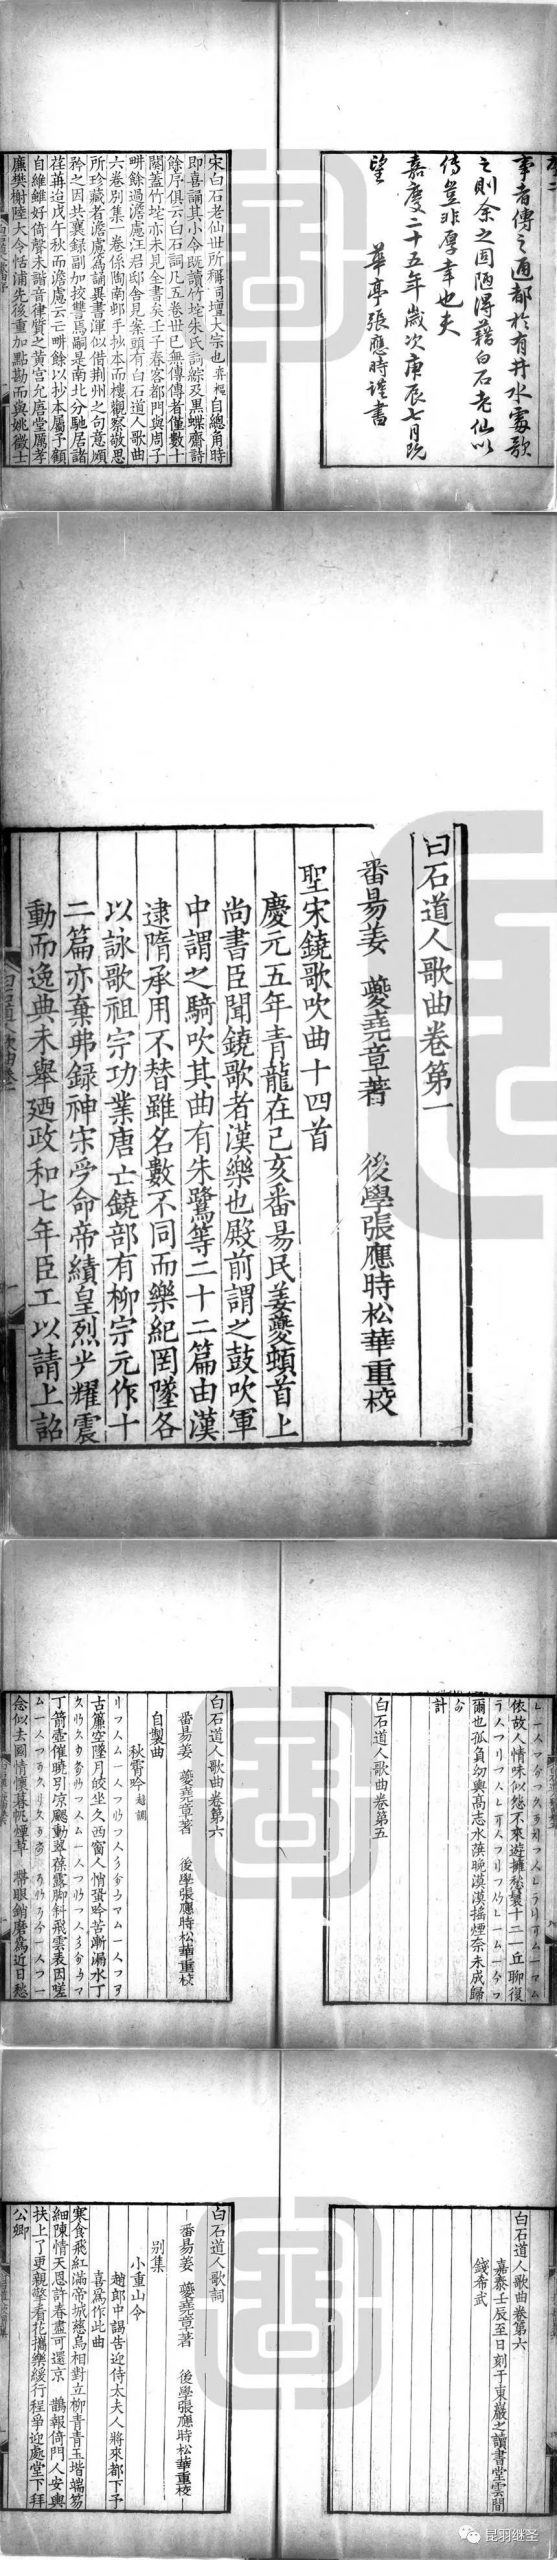 事者傳之通都於有井水處歌
之則余之固陋得藉白石老仙以
傳豈非厚幸也夫
嘉慶二十五年歲次庚辰七月既
望
華亭張應時謹書
宋白石老仙世所稱詞壇大宗也弈樞自總角時
即喜誦其小令既讀竹垞朱氏詞綜及黑蝶齋詩
餘序俱云白石詞凡五卷世已無傳傳者僅數十
闋蓋竹垞亦未見全書矣壬子春客都門與周子
畊餘過澹慮汪君邸舍見案頭有白石道人歌曲
六卷別集一卷係陶南邨手抄本而樓觀察敬思
所珍藏者澹慮為誦異書渾似借荆州之句意頗
矜之因共襄録副加按讐焉嗣是南北分馳居諸
荏苒迨戊午秋而澹慮云亡畊餘以抄本屬予顧
自維雖好倚聲未諳音律質之黃宫允唐堂厲孝
廉樊榭陸大令恬浦先後重加點勘而與姚徵士
白石道人歌曲卷第一
番昜姜　夔堯章著　後學張應時松華重校
聖宋鐃歌吹曲十四首
慶元五年青龍在己亥番昜民姜夔頓首上
尚書臣聞鐃歌者漢樂也殿前謂之鼓吹軍
中謂之騎吹其曲有朱鷺等二十二篇由漢
逮隋承用不替雖名數不同而樂紀罔墜各
以詠歌祖宗功業唐亡鐃部有柳宗元作十
二篇亦棄弗録神宋受命帝績皇烈光耀震
動而逸典未舉廼政和七年臣工以請上詔
依故人情味似怨不來遊擁愁鬟十二丘聊復
爾也孤負幼輿高志水葓晚漠漠摇煙奈未成歸
計
白石道人歌曲卷第五
白石道人歌曲卷第六
番昜姜　夔堯章著　後學張應時松華重校
自製曲
秋宵吟越調
古簾空墜月皎坐久西窗人悄蛩吟苦漸漏水丁
丁箭壺催曉引凉颸動翠葆露脚斜飛雲表因嗟
念似去國情懷暮帆煙草　帶眼銷磨為近日愁
白石道人歌曲卷第六
嘉泰壬戌至日刻于東巖之讀書堂雲間
錢希武
白石道人歌詞
番昜姜　夔堯章著　後學張應時松華重校
別集
小重山令
趙郎中謁告迎侍太夫人將來都下予
喜為作此曲
寒食飛紅滿帝城慈烏相對立柳青青玉堦端笏
細陳情天恩許春盡可還京　鵲報倚門人安輿
扶上了更親擎看花攜樂緩行程爭迎處堂下拜
公卿
昆羽继圣